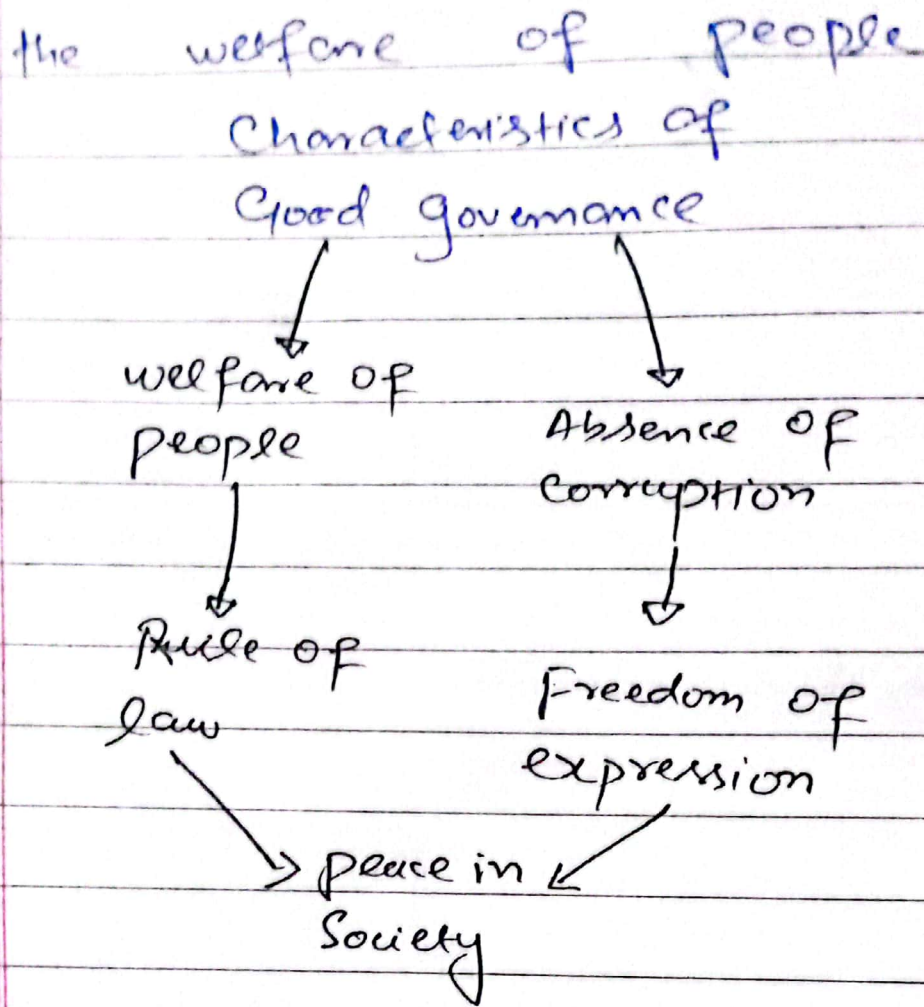 the welfare of people
Characteristics of
Good governance
welfare of
people
Absence of
corruption
Rule of
law
Freedom of
expression
peace in
Society